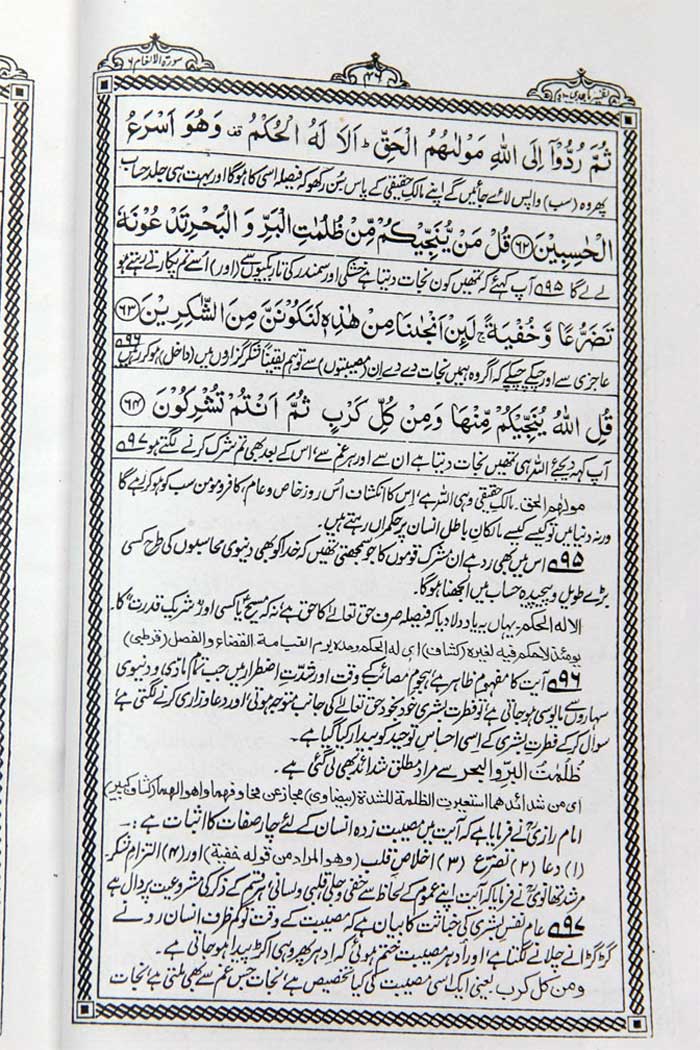 سورة الانعام ٦
٤٦
تفسیر ماجدی
ثُمَّ رُدُّوْٓا اِلَى اللّٰهِ مَوْلٰىهُمُ الْحَقِّ ؕ اَلَا لَهُ الْحُكْمُ قف وَهُوَ اَسْرَعُ
پھر وہ (سب) واپس لائے جائیں گے اپنے مالک حقیقی کے پاس سن رکھو کہ فیصلہ اسی کا ہوگا اور بہت ہی جلد حساب
الْحٰسِبِيْنَ ﴿٦٢﴾ قُلْ مَنْ يُّنَجِّيْكُمْ مِّنْ ظُلُمٰتِ الْبَرِّ وَ الْبَحْرِ تَدْعُوْنَهٗ
لے لے گا ۹۵ آپ کہئے کہ تمھیں کون نجات دیتا ہے خشکی اور سمندر کی تاریکیوں سے (اور) اُسے تم پکارتے رہتے ہو
تَضَرُّعًا وَّ خُفْيَةً ۚ لَىِٕنْ اَنْجٰىنَا مِنْ هٰذِهٖ لَنَكُوْنَنَّ مِنَ الشّٰكِرِيْنَ ﴿٦٣﴾
عاجزی سے اور چپکے چپکے کہ اگر وہ ہمیں نجات دے دے ان (مصیبتوں) سے تو ہم یقیناً شکر گزاروں میں (داخل) ہو کر رہیں ۹۶
قُلِ اللّٰهُ يُنَجِّيْكُمْ مِّنْهَا وَمِنْ كُلِّ كَرْبٍ ثُمَّ اَنْتُمْ تُشْرِكُوْنَ ﴿٦٤﴾
آپ کہہ دیجئے اللہ ہی تمھیں نجات دیتا ہے ان سے اور ہر غم سے، اس کے بعد بھی تم شرک کرنے لگتے ہو ۹۷
مولٰهم الحق۔ مالک حقیقی وہی اللہ ہے، اس کا انکشاف اس روز خاص و عام، کافر و مومن سب کو ہو کر رہے گا
ورنہ دنیا میں تو کیسے کیسے مالکانِ باطل انسان پر حکمراں رہتے ہیں۔
۹۵ اس میں بھی رد ہے ان مشرک قوموں کا جو سمجھتی تھیں کہ خدا کو بھی دنیوی محاسبوں کی طرح کسی
بڑے طویل و پیچیدہ حساب میں الجھنا ہوگا۔
الا له الحکم۔ یہاں یہ یاد دلا دیا کہ فیصلہ صرف حق تعالےٰ کا حق ہے نہ کہ مسیح یا کسی اور "شریک قدرت" کا۔
يومئذ لاحكم فيه لغيره (كشاف) اى له الحكم وحده يوم القيامة القضاء والفصل (قرطبى)
۹۶ آیت کا مفہوم ظاہر ہے، ہجومِ مصائب کے وقت اور شدّتِ اضطرار میں جب تمام مادّی و دنیوی
سہاروں سے مایوسی ہو جاتی ہے تو فطرتِ بشری خود بخود حق تعالےٰ کی جانب متوجہ ہوتی، اور دعا و زاری کرنے لگتی ہے،
سوال کر کے فطرتِ بشری کے اسی احساسِ توحید کو بیدار کیا گیا ہے۔
ظُلُمٰتِ البرّ والبحر سے مراد مطلق شدائد بھی لی گئی ہے۔
اى من شدائدهما استعيرت الظلمة للشدة (بيضاوى) مجاز عن مخاوفهما واهوالهما (كشاف، كبير)
امام رازیؒ نے فرمایا ہے کہ آیت میں مصیبت زدہ انسان کے لئے چار صفات کا اثبات ہے:۔
(۱) دعا (۲) تضرع (۳) اخلاصِ قلب (وهو المراد من قوله خفية) اور (۴) التزامِ شکر۔
مرشد تھانویؒ نے فرمایا کہ آیت اپنے عموم کے لحاظ سے خفی و جلی، قلبی و لسانی، ہر قسم کے ذکر کی مشروعیت پر دال ہے
۹۷ عام نفسِ بشری کی خباثت کا بیان ہے کہ مصیبت کے وقت تو کم ظرف انسان رونے
گڑگڑانے چلّانے لگتا ہے، اور اُدھر مصیبت ختم ہوئی کہ ادھر پھر وہی اکڑ پیدا ہو جاتی ہے۔
ومن کل کرب یعنی ایک اسی مصیبت کی کیا تخصیص ہے، نجات جس غم سے بھی ملتی ہے، نجات